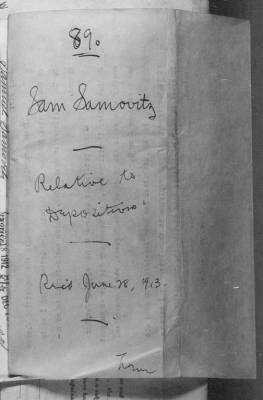 89.
Sam Samovitz
Relative to
Depositions
Rec'd June 28, 1913.